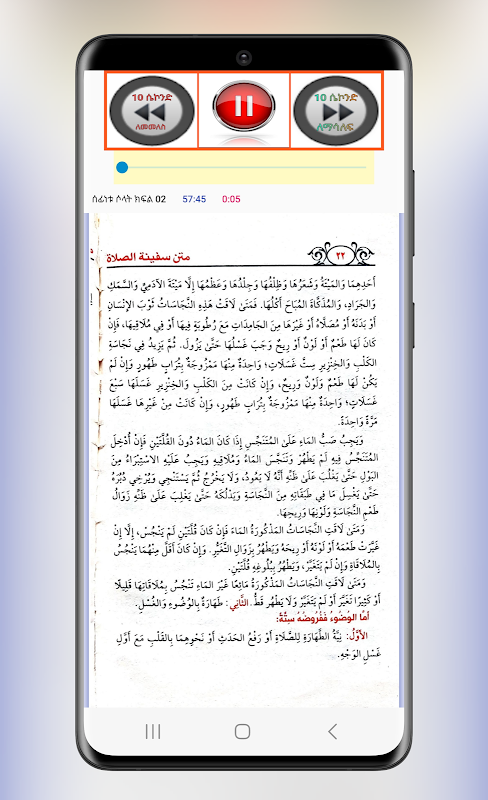 10 ሴኮንድ
ለመመለስ
10 ሴኮንድ
ለማሳለፍ
ሰፊነቱ ሶላት ክፍል 02 57:45 0:05
متن سفينة الصلاة ٢٢
أَحَدِهِمَا وَالمَيْتَةُ وَشَعْرُهَا وَظِلْفُهَا وَجِلْدُهَا وَعَظْمُهَا إِلَّا مَيْتَةَ الآدَمِيِّ وَالسَّمَكِ
وَالجَرَادِ، وَالمُذَكَّاةَ المُبَاحَ أَكْلُهَا. فَمَتَىٰ لَاقَتْ هَذِهِ النَّجَاسَاتُ ثَوْبَ الإِنْسَانِ
أَوْ بَدَنَهُ أَوْ مُصَلَّاهُ أَوْ غَيْرَهَا مِنَ الجَامِدَاتِ مَعَ رُطُوبَةٍ فِيهَا أَوْ فِي مُلَاقِيهَا، فَإِنْ
كَانَ لَهَا طَعْمٌ أَوْ لَوْنٌ أَوْ رِيحٌ وَجَبَ غَسْلُهَا حَتَّىٰ يَزُولَ. ثُمَّ يَزِيدُ فِي نَجَاسَةِ
الكَلْبِ وَالخِنْزِيرِ سِتَّ غَسَلَاتٍ؛ وَاحِدَةٌ مِنْهَا مَمْزُوجَةٌ بِتُرَابٍ طَهُورٍ وَإِنْ لَمْ
يَكُنْ لَهَا طَعْمٌ وَلَوْنٌ وَرِيحٌ، وَإِنْ كَانَتْ مِنَ الكَلْبِ وَالخِنْزِيرِ غَسَلَهَا سَبْعَ
غَسَلَاتٍ؛ وَاحِدَةٌ مِنْهَا مَمْزُوجَةٌ بِتُرَابٍ طَهُورٍ، وَإِنْ كَانَتْ مِنْ غَيْرِهَا غَسَلَهَا
مَرَّةً وَاحِدَةً.
وَيَجِبُ صَبُّ المَاءِ عَلَىٰ المُتَنَجِّسِ إِذَا كَانَ المَاءُ دُونَ القُلَّتَيْنِ فَإِنْ أُدْخِلَ
المُتَنَجِّسُ فِيهِ لَمْ يَطْهُرْ وَتَنَجَّسَ المَاءُ وَمُلَاقِيهِ وَيَجِبُ عَلَيْهِ الِاسْتِبْرَاءُ مِنَ
البَوْلِ حَتَّىٰ يَغْلِبَ عَلَىٰ ظَنِّهِ أَنَّهُ لَا يَعُودُ، وَلَا يَخْرُجُ ثُمَّ يَسْتَنْجِي وَيُرْخِي دُبُرَهُ
حَتَّىٰ يَغْسِلَ مَا فِي طَبَقَاتِهِ مِنَ النَّجَاسَةِ وَيَدْلُكَهُ حَتَّىٰ يَغْلِبَ عَلَىٰ ظَنِّهِ زَوَالُ
طَعْمِ النَّجَاسَةِ وَلَوْنِهَا وَرِيحِهَا.
وَمَتَىٰ لَاقَتِ النَّجَاسَاتُ المَذْكُورَةُ المَاءَ فَإِنْ كَانَ قُلَّتَيْنِ لَمْ يَنْجُسْ، إِلَّا إِنْ
غَيَّرَتْ طَعْمَهُ أَوْ لَوْنَهُ أَوْ رِيحَهُ وَيَطْهُرُ بِزَوَالِ التَّغَيُّرِ. وَإِنْ كَانَ أَقَلَّ مِنْهُمَا يَنْجُسُ
بِالمُلَاقَاةِ وَإِنْ لَمْ يَتَغَيَّرْ، وَيَطْهُرُ بِبُلُوغِهِ قُلَّتَيْنِ.
وَمَتَىٰ لَاقَتِ النَّجَاسَاتُ المَذْكُورَةُ مَائِعًا غَيْرَ المَاءِ تَنَجَّسَ بِمُلَاقَاتِهَا قَلِيلًا
أَوْ كَثِيرًا تَغَيَّرَ أَوْ لَمْ يَتَغَيَّرْ وَلَا يَطْهُرُ قَطُّ. الثَّانِي: طَهَارَةٌ بِالوُضُوءِ وَالغُسْلِ.
أمَّا الوُضُوءُ فَفُرُوضُهُ سِتَّةٌ:
الأوَّلُ: نِيَّةُ الطَّهَارَةِ لِلصَّلَاةِ أَوْ رَفْعُ الحَدَثِ أَوْ نَحْوِهِمَا بِالقَلْبِ مَعَ أَوَّلِ
غَسْلِ الوَجْهِ.